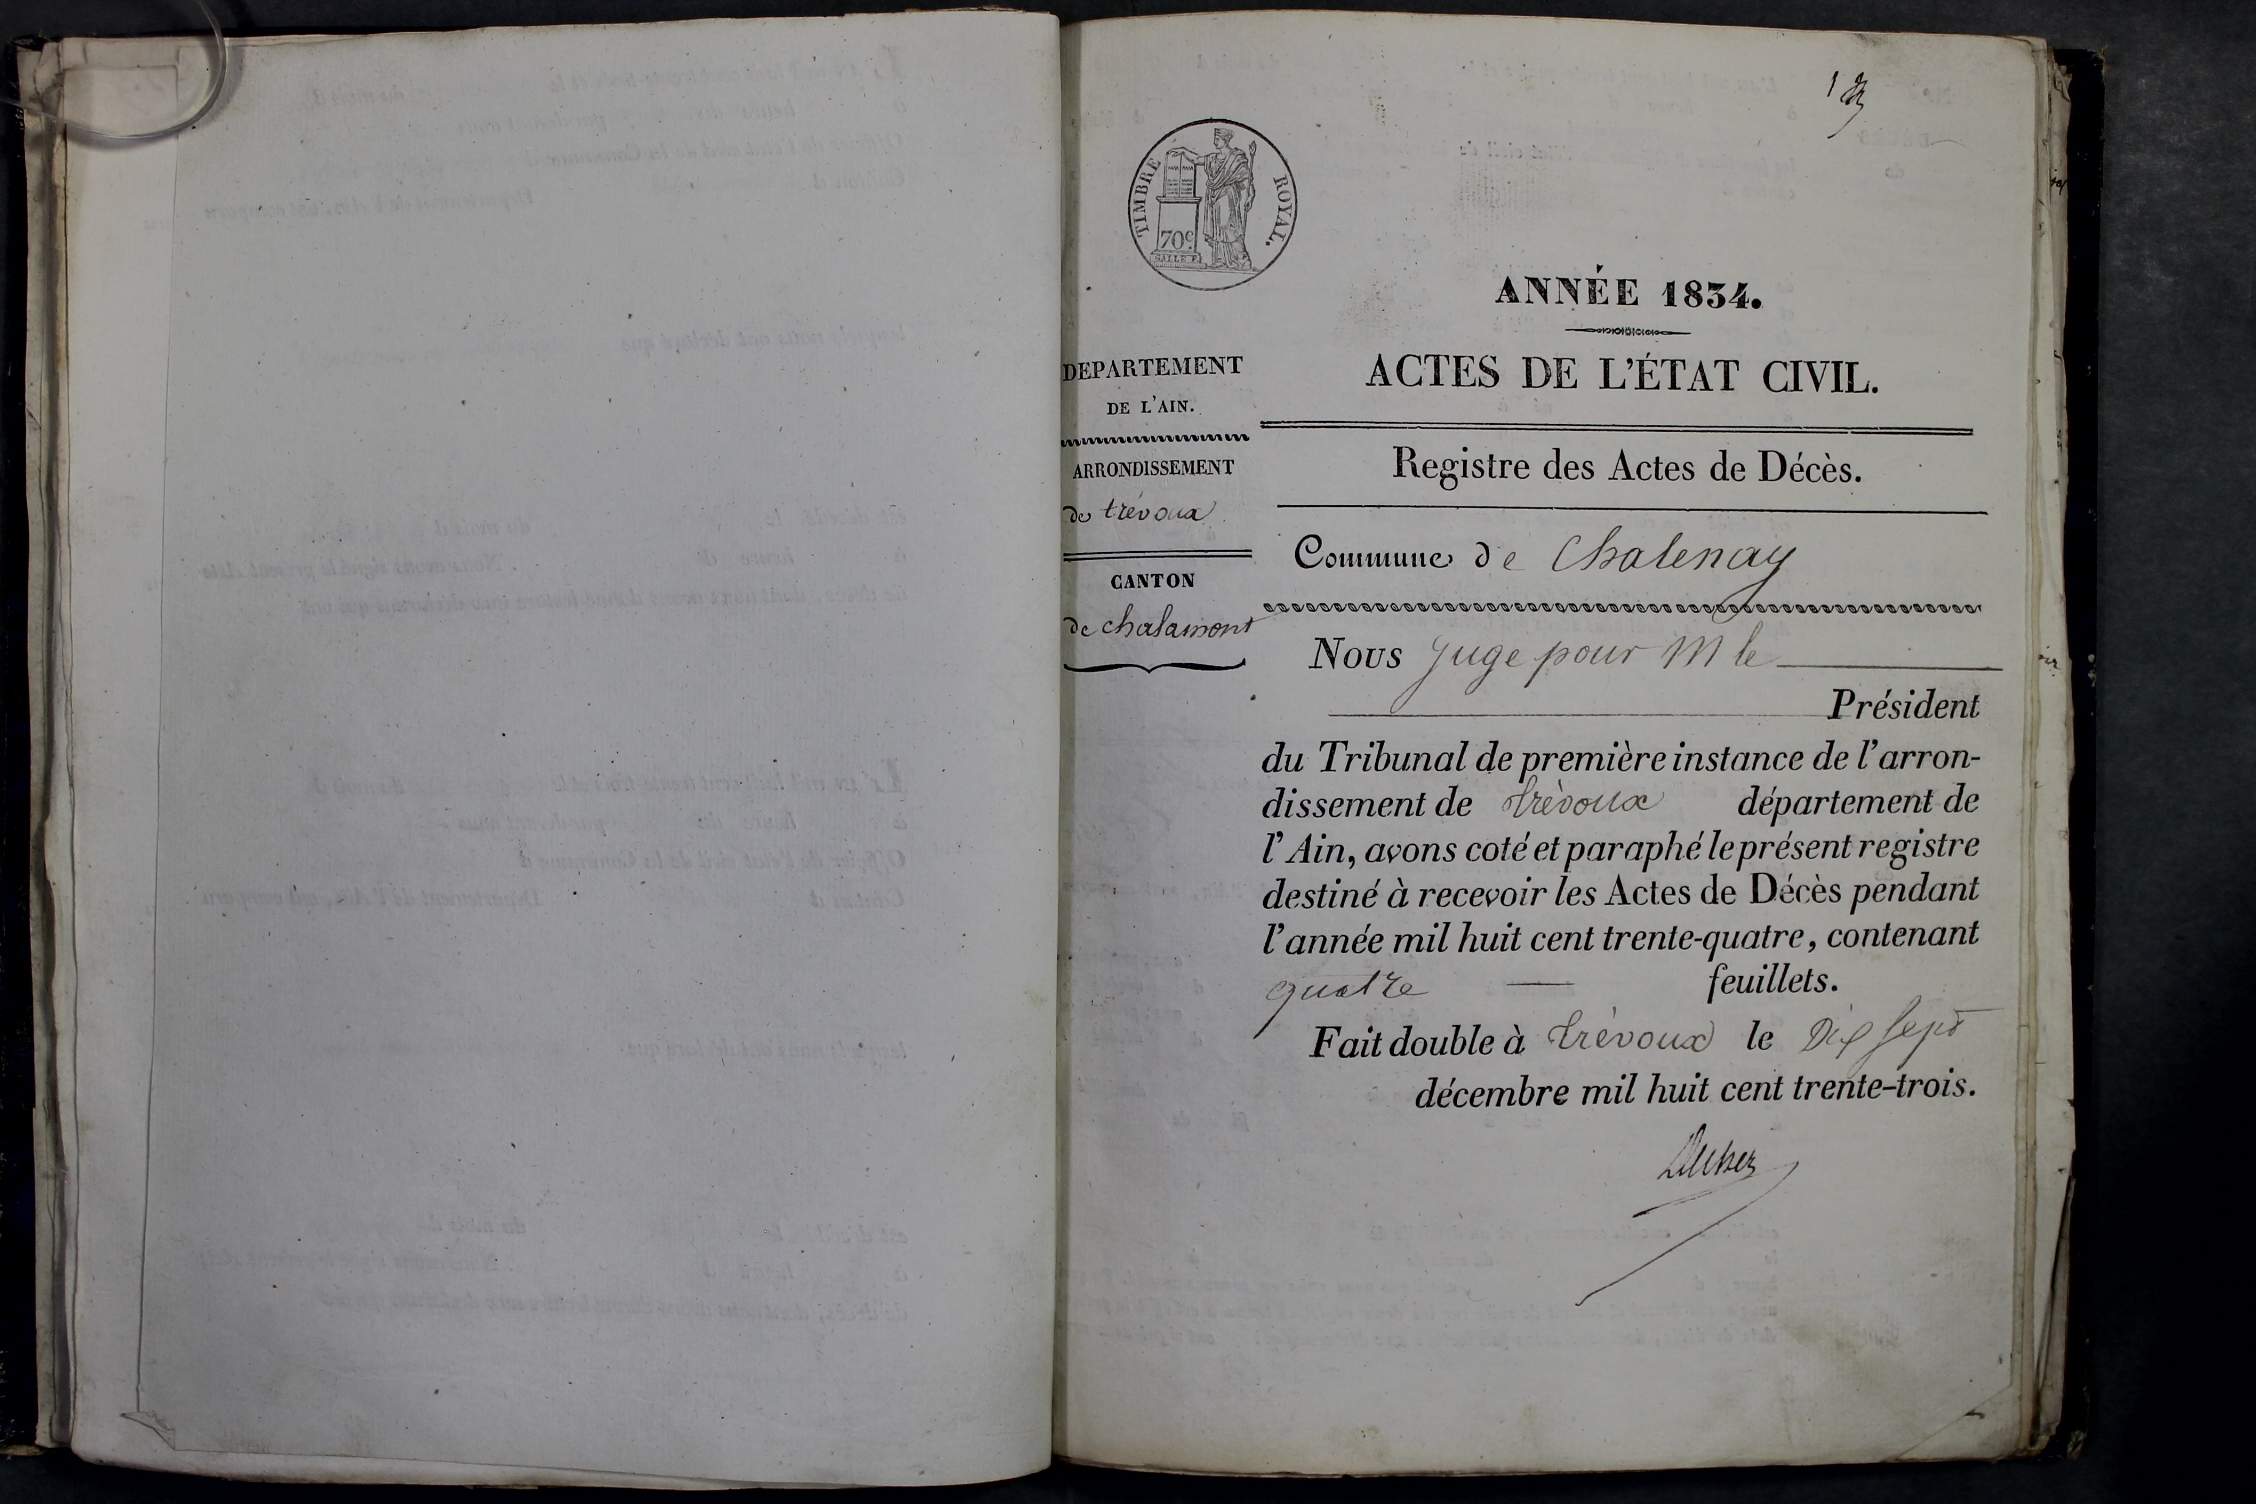 1
TIMBRE ROYAL.
70 c
ANNÉE 1834.
ACTES DE L'ÉTAT CIVIL.
DEPARTEMENT
DE L'AIN.
ARRONDISSEMENT
de trévoux
CANTON
de chalamont
Registre des Actes de Décès.
Commune de Chatenay
Nous Juge pour M le
Président
du Tribunal de première instance de l'arron-
dissement de trèvoux département de
l'Ain, avons coté et paraphé le présent registre
destiné à recevoir les Actes de Décès pendant
l'année mil huit cent trente-quatre, contenant
quatre feuillets.
Fait double à trèvoux le Dix Sept
décembre mil huit cent trente-trois.